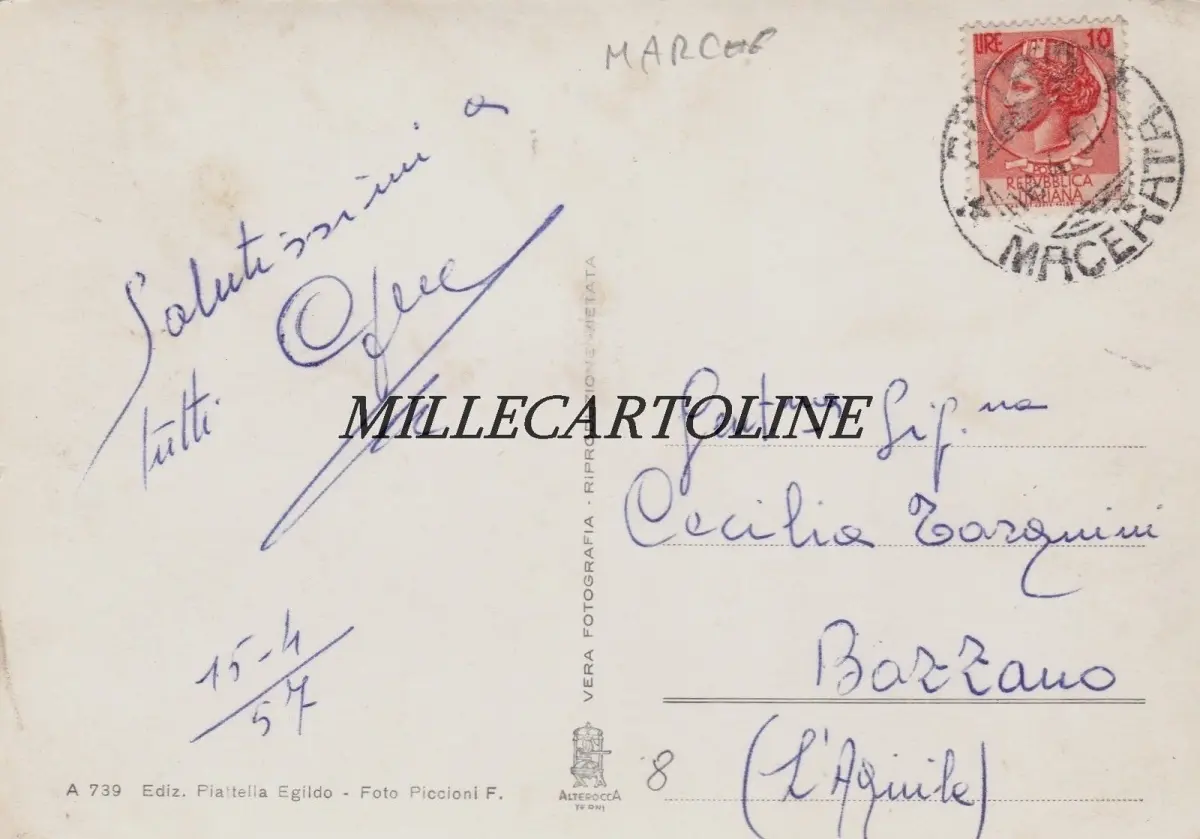 MARCHE
LIRE 10
POSTE
REPVBBLICA
ITALIANA
MACERATA
Salutissimi a
tutti
15-4
57
MILLECARTOLINE
Gent.ma Sig.na
Cecilia Tarquini
Bazzano
(L'Aquila)
8
VERA FOTOGRAFIA - RIPRODUZIONE VIETATA
ALTEROCCA
TERNI
A 739 Ediz. Piattella Egildo - Foto Piccioni F.